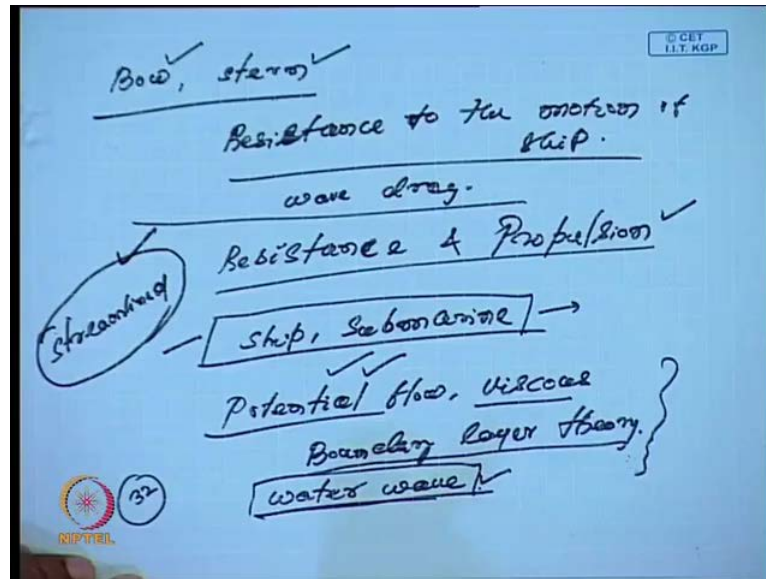 © CET
I.I.T. KGP
Bow, stern
Resistance to the motion of
ship.
wave drag.
Resistance & Propulsion
streamlined
ship, submarine
Potential flow, viscous
Boundary layer theory.
water wave
32
NPTEL